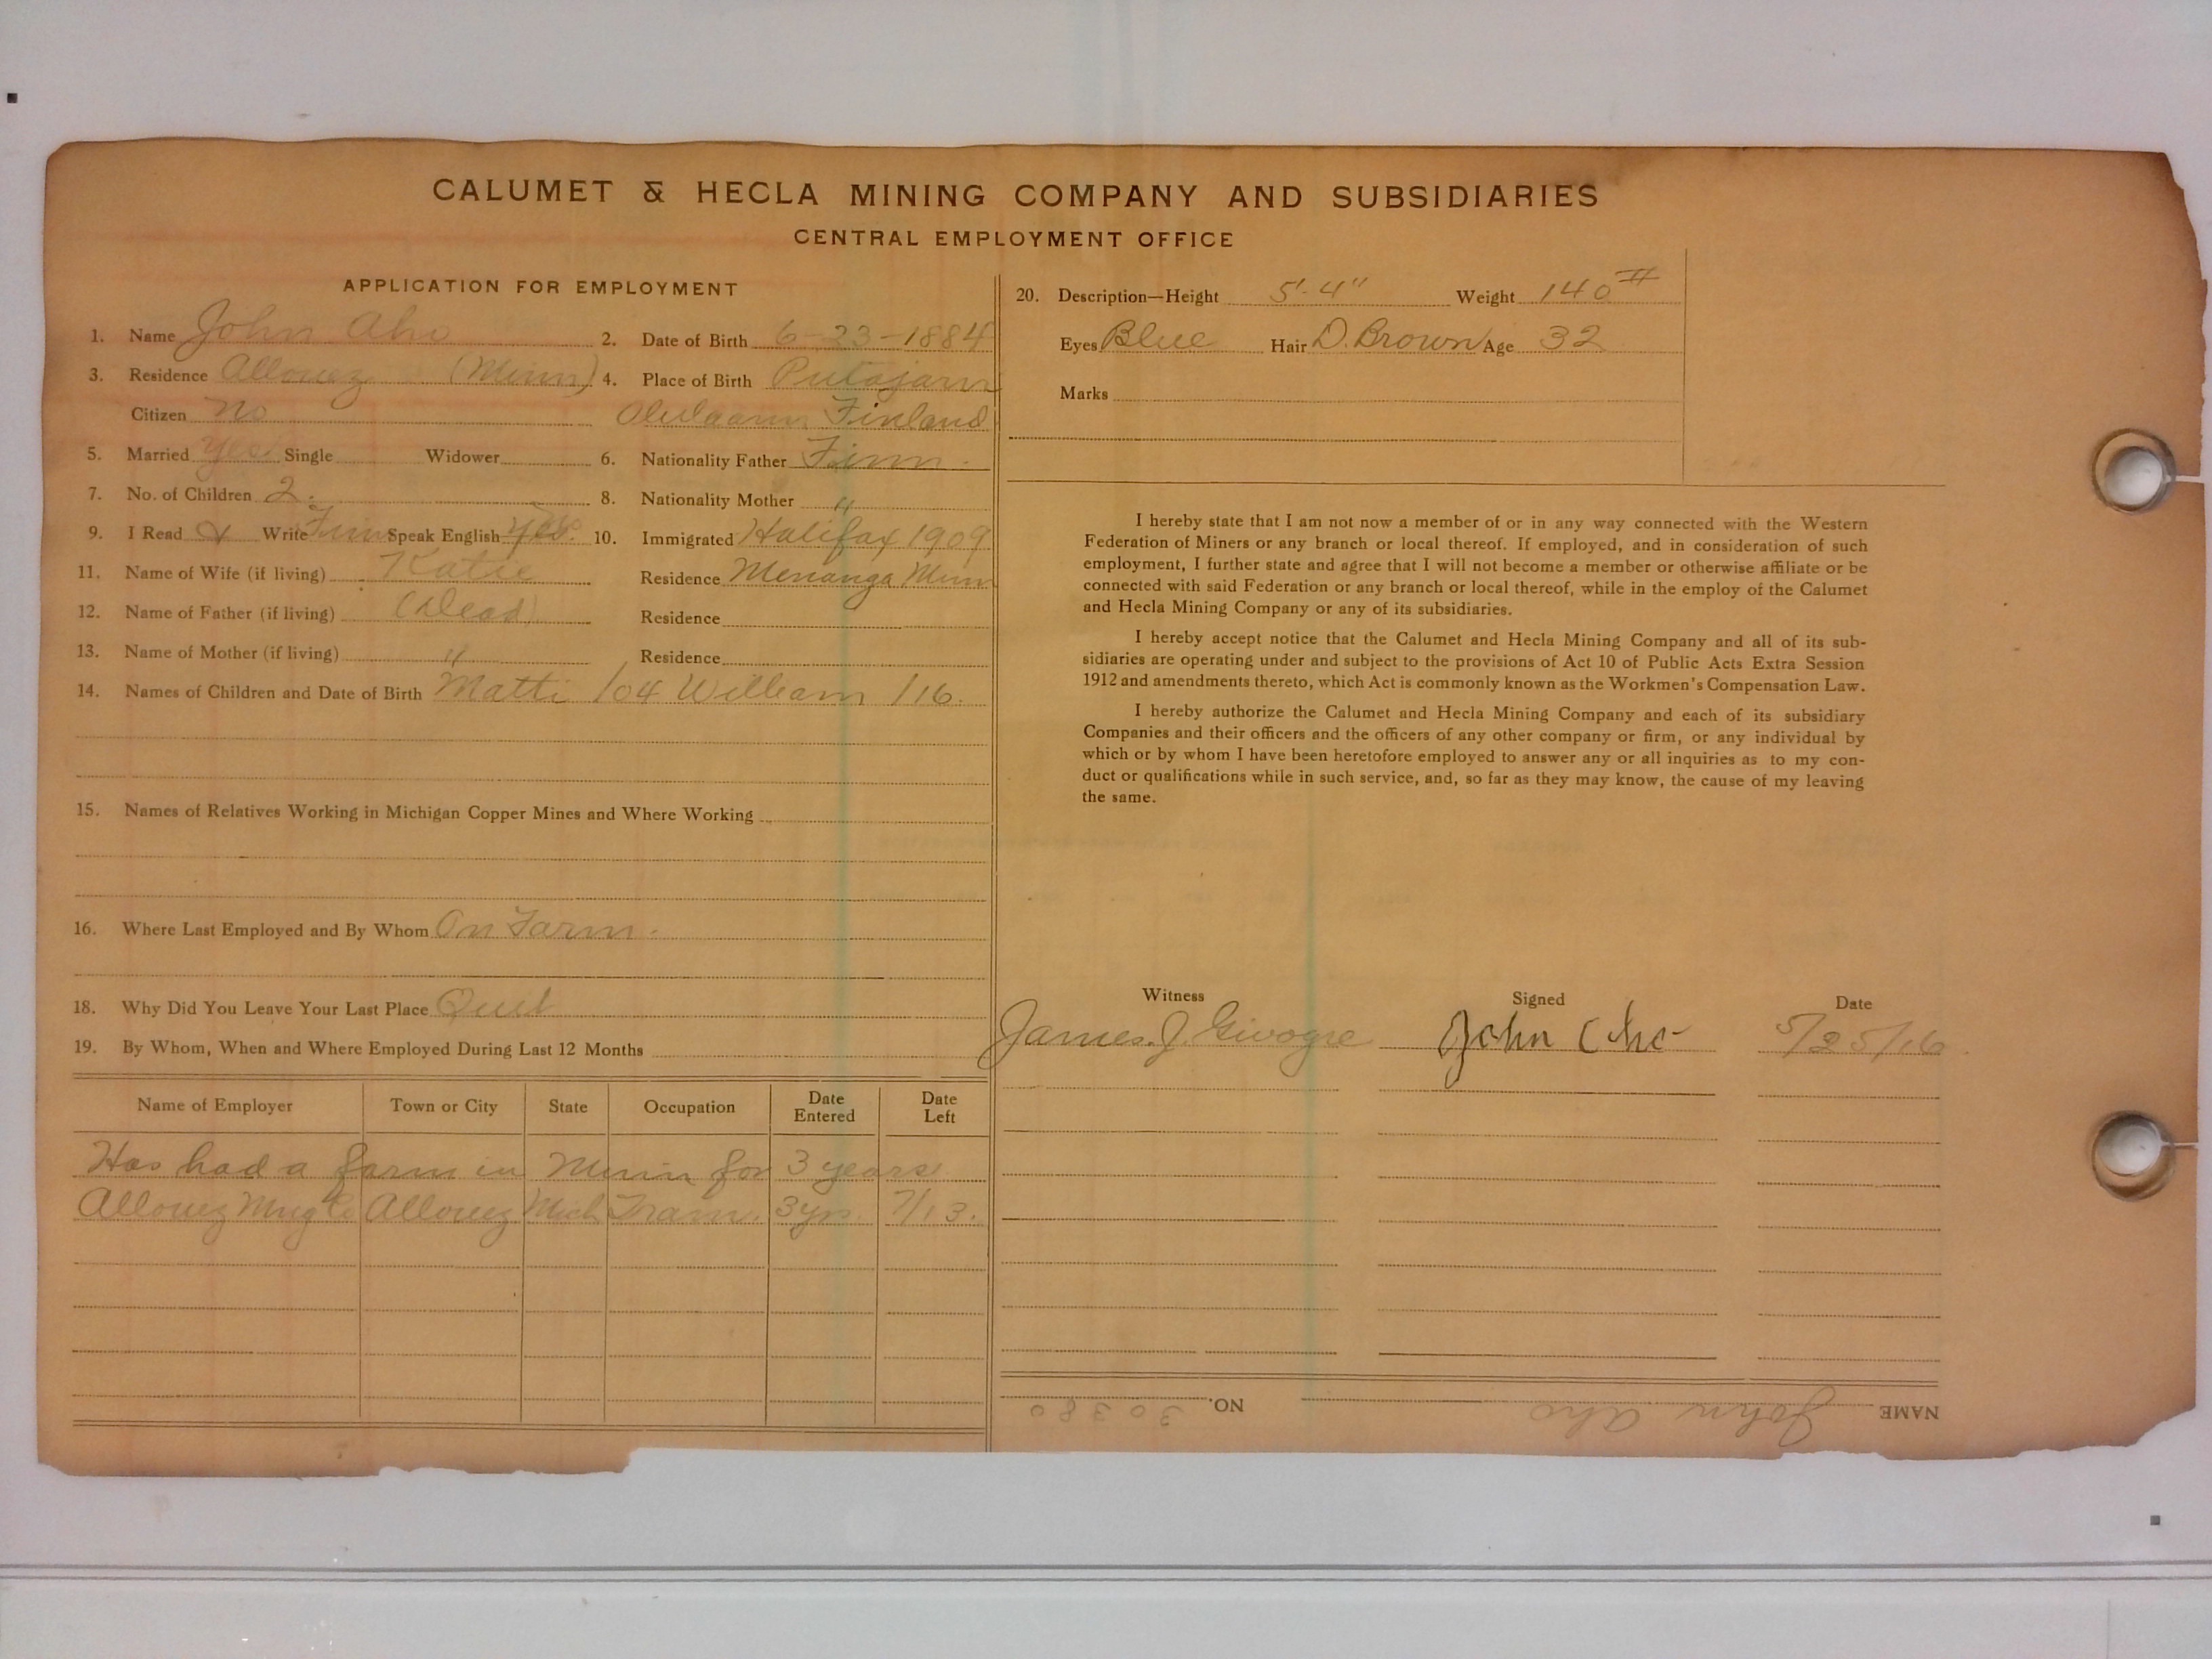 CALUMET & HECLA MINING COMPANY AND SUBSIDIARIES
CENTRAL EMPLOYMENT OFFICE
APPLICATION FOR EMPLOYMENT
1. Name John Aho 2. Date of Birth 6-23-1884
3. Residence Allouez (Minn) 4. Place of Birth
Citizen no Finland
5. Married yes Single Widower 6. Nationality Father Finn.
7. No. of Children 2. 8. Nationality Mother "
9. I Read & Write Finn Speak English yes. 10. Immigrated Halifax 1909
11. Name of Wife (if living) Katie Residence Menanga Minn
12. Name of Father (if living) (Dead) Residence
13. Name of Mother (if living) " Residence
14. Names of Children and Date of Birth Matti /04 William /16.
15. Names of Relatives Working in Michigan Copper Mines and Where Working
16. Where Last Employed and By Whom On Farm.
18. Why Did You Leave Your Last Place Quit
19. By Whom, When and Where Employed During Last 12 Months
Name of Employer Town or City State Occupation Date Entered Date Left
Has had a farm in Minn for 3 years
Allouez Allouez Mich Tram. 3 yrs. 7/13.
20. Description—Height 5'-4" Weight 140#
Eyes Blue Hair D. Brown Age 32
Marks
I hereby state that I am not now a member of or in any way connected with the Western
Federation of Miners or any branch or local thereof. If employed, and in consideration of such
employment, I further state and agree that I will not become a member or otherwise affiliate or be
connected with said Federation or any branch or local thereof, while in the employ of the Calumet
and Hecla Mining Company or any of its subsidiaries.
I hereby accept notice that the Calumet and Hecla Mining Company and all of its sub-
sidiaries are operating under and subject to the provisions of Act 10 of Public Acts Extra Session
1912 and amendments thereto, which Act is commonly known as the Workmen's Compensation Law.
I hereby authorize the Calumet and Hecla Mining Company and each of its subsidiary
Companies and their officers and the officers of any other company or firm, or any individual by
which or by whom I have been heretofore employed to answer any or all inquiries as to my con-
duct or qualifications while in such service, and, so far as they may know, the cause of my leaving
the same.
Witness Signed Date
James. J. John Aho 5/25/16
NAME John Aho NO. 30380